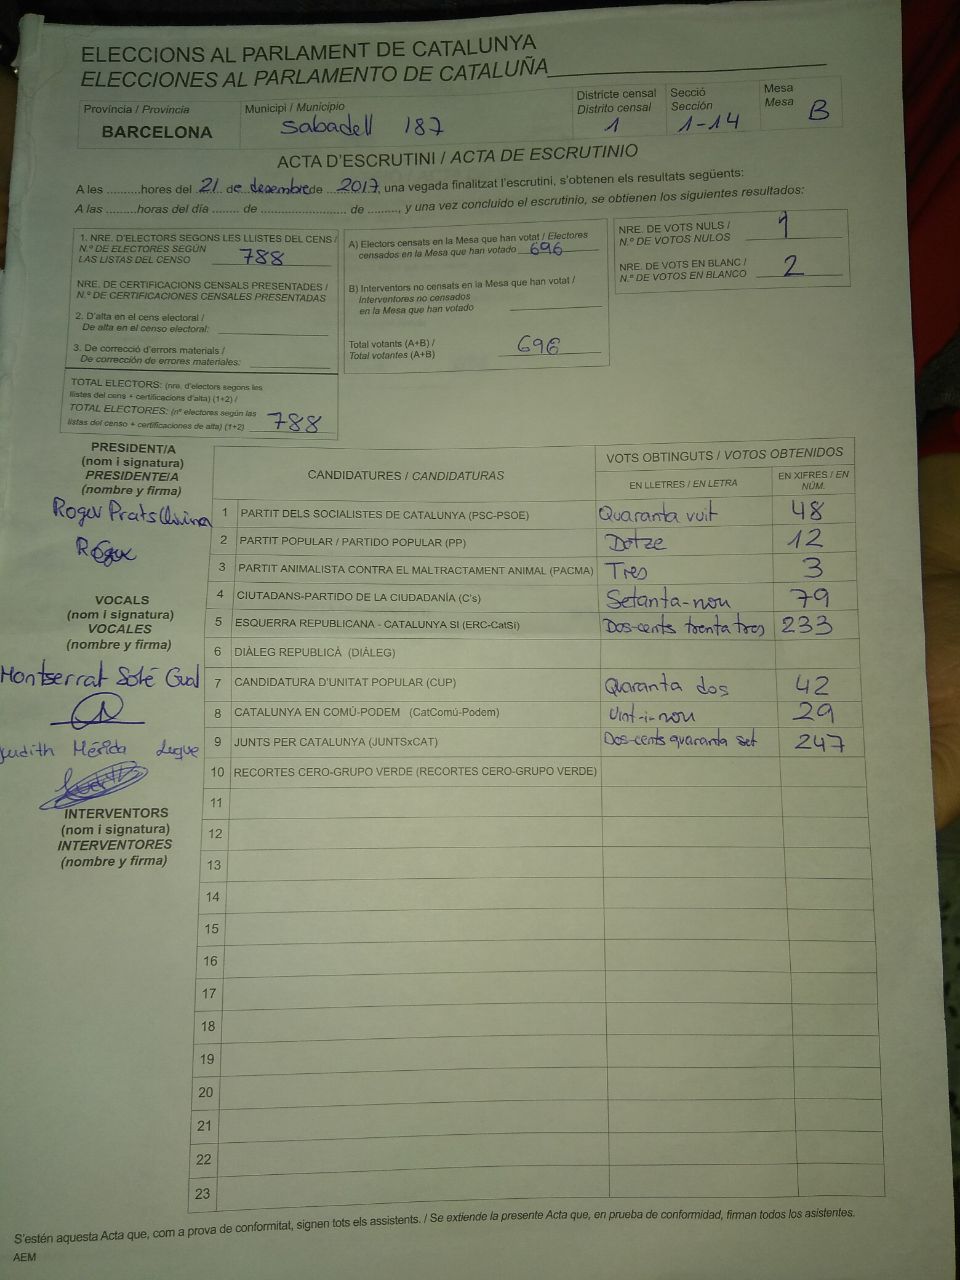 ELECCIONS AL PARLAMENT DE CATALUNYA
ELECCIONES AL PARLAMENTO DE CATALUÑA
Província / Provincia
BARCELONA
Municipi / Municipio
Sabadell 187
Districte censal
Distrito censal
1
Secció
Sección
1-14
Mesa
Mesa
B
ACTA D'ESCRUTINI / ACTA DE ESCRUTINIO
A les ..........hores del 21 de desembre de 2017, una vegada finalitzat l'escrutini, s'obtenen els resultats següents:
A las .........horas del día ........ de ......................... de ........., y una vez concluido el escrutinio, se obtienen los siguientes resultados:
1. NRE. D'ELECTORS SEGONS LES LLISTES DEL CENS /
N.º DE ELECTORES SEGÚN
LAS LISTAS DEL CENSO 788
NRE. DE CERTIFICACIONS CENSALS PRESENTADES /
N.º DE CERTIFICACIONES CENSALES PRESENTADAS
2. D'alta en el cens electoral /
De alta en el censo electoral:
3. De correcció d'errors materials /
De corrección de errores materiales:
TOTAL ELECTORS: (nre. d'electors segons les
llistes del cens + certificacions d'alta) (1+2) /
TOTAL ELECTORES: (nº electores según las
listas del censo + certificaciones de alta) (1+2) 788
A) Electors censats en la Mesa que han votat / Electores
censados en la Mesa que han votado 696
B) Interventors no censats en la Mesa que han votat /
Interventores no censados
en la Mesa que han votado
Total votants (A+B) /
Total votantes (A+B) 696
NRE. DE VOTS NULS /
N.º DE VOTOS NULOS 1
NRE. DE VOTS EN BLANC /
N.º DE VOTOS EN BLANCO 2
PRESIDENT/A
(nom i signatura)
PRESIDENTE/A
(nombre y firma)
Roger Prats
Roger
VOCALS
(nom i signatura)
VOCALES
(nombre y firma)
Montserrat Solé Gual
Judith Mérida Luque
INTERVENTORS
(nom i signatura)
INTERVENTORES
(nombre y firma)
CANDIDATURES / CANDIDATURAS
VOTS OBTINGUTS / VOTOS OBTENIDOS
EN LLETRES / EN LETRA
EN XIFRES / EN NÚM.
1 PARTIT DELS SOCIALISTES DE CATALUNYA (PSC-PSOE) Quaranta vuit 48
2 PARTIT POPULAR / PARTIDO POPULAR (PP) Dotze 12
3 PARTIT ANIMALISTA CONTRA EL MALTRACTAMENT ANIMAL (PACMA) Tres 3
4 CIUTADANS-PARTIDO DE LA CIUDADANÍA (C's) Setanta-nou 79
5 ESQUERRA REPUBLICANA - CATALUNYA SI (ERC-CatSí) Dos-cents trenta tres 233
6 DIÀLEG REPUBLICÀ (DIÀLEG)
7 CANDIDATURA D'UNITAT POPULAR (CUP) Quaranta dos 42
8 CATALUNYA EN COMÚ-PODEM (CatComú-Podem) Vint-i-nou 29
9 JUNTS PER CATALUNYA (JUNTSxCAT) Dos-cents quaranta set 247
10 RECORTES CERO-GRUPO VERDE (RECORTES CERO-GRUPO VERDE)
11
12
13
14
15
16
17
18
19
20
21
22
23
S'estén aquesta Acta que, com a prova de conformitat, signen tots els assistents. / Se extiende la presente Acta que, en prueba de conformidad, firman todos los asistentes.
AEM